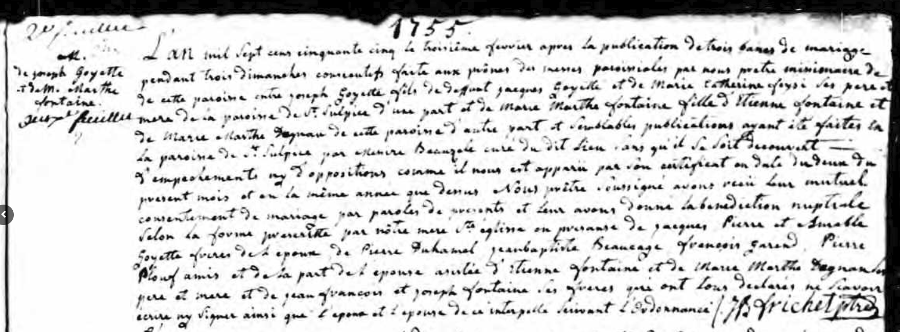 1755.
2e feuillet
M.
de joseph Goyette
et de M. Marthe
fontaine.
L'an mil sept cens cinquante cinq le troisième février apres la publication de trois bancs de mariage
pendant trois dimanches consecutifs faite aux prônes des messes paroissiales par nous prêtre missionnaire de
de cette paroisse entre joseph Goyette fils de deffunt jacques Goyette et de Marie Catherine ses pere et
mere de la paroisse de St. Sulpice d'une part et de Marie Marthe fontaine fille d'Etienne fontaine et
de Marie Marthe Dagnau de cette paroisse d'autre part et semblables publications ayant été faites en
la paroisse de St. Sulpice par Beauzele curé du dit lieu sans qu'il se soit decouvert
d'empechements ny d'oppositions comme il nous est apparu par son certificat en date du deux du
present mois et en la même année que dessus Nous prêtre soussigné avons reçu leur mutuel
consentement de mariage par paroles de presents et leur avons donné la benediction nuptiale
selon la forme prescritte par nôtre mere Ste eglise en presance de jacques, Pierre et Amable
Goyette freres de l epoux, de Pierre Duhamel, jeanbaptiste Beaucage, françois garend, Pierre
Plouf amis et de la part de l epouse d'Etienne fontaine et de Marie Marthe Dagnau ses
pere et mere et de jean francois et joseph fontaine ses freres qui ont tous declarés ne sçavoir
écrire ny signer ainsi que l'epoux et l'epouse de ce interpellé suivant l'ordonnance frichet ptre